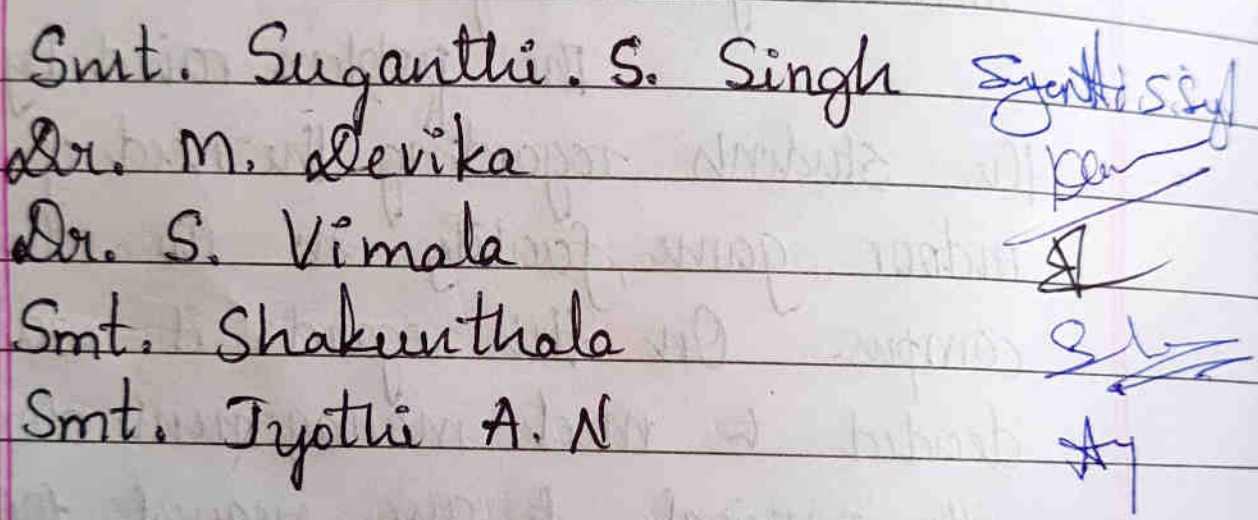 Smt. Suganthi. S. Singh Suganthi S. Singh
Dr. M. Devika
Dr. S. Vimala
Smt. Shakunthala
Smt. Jyothi A. N